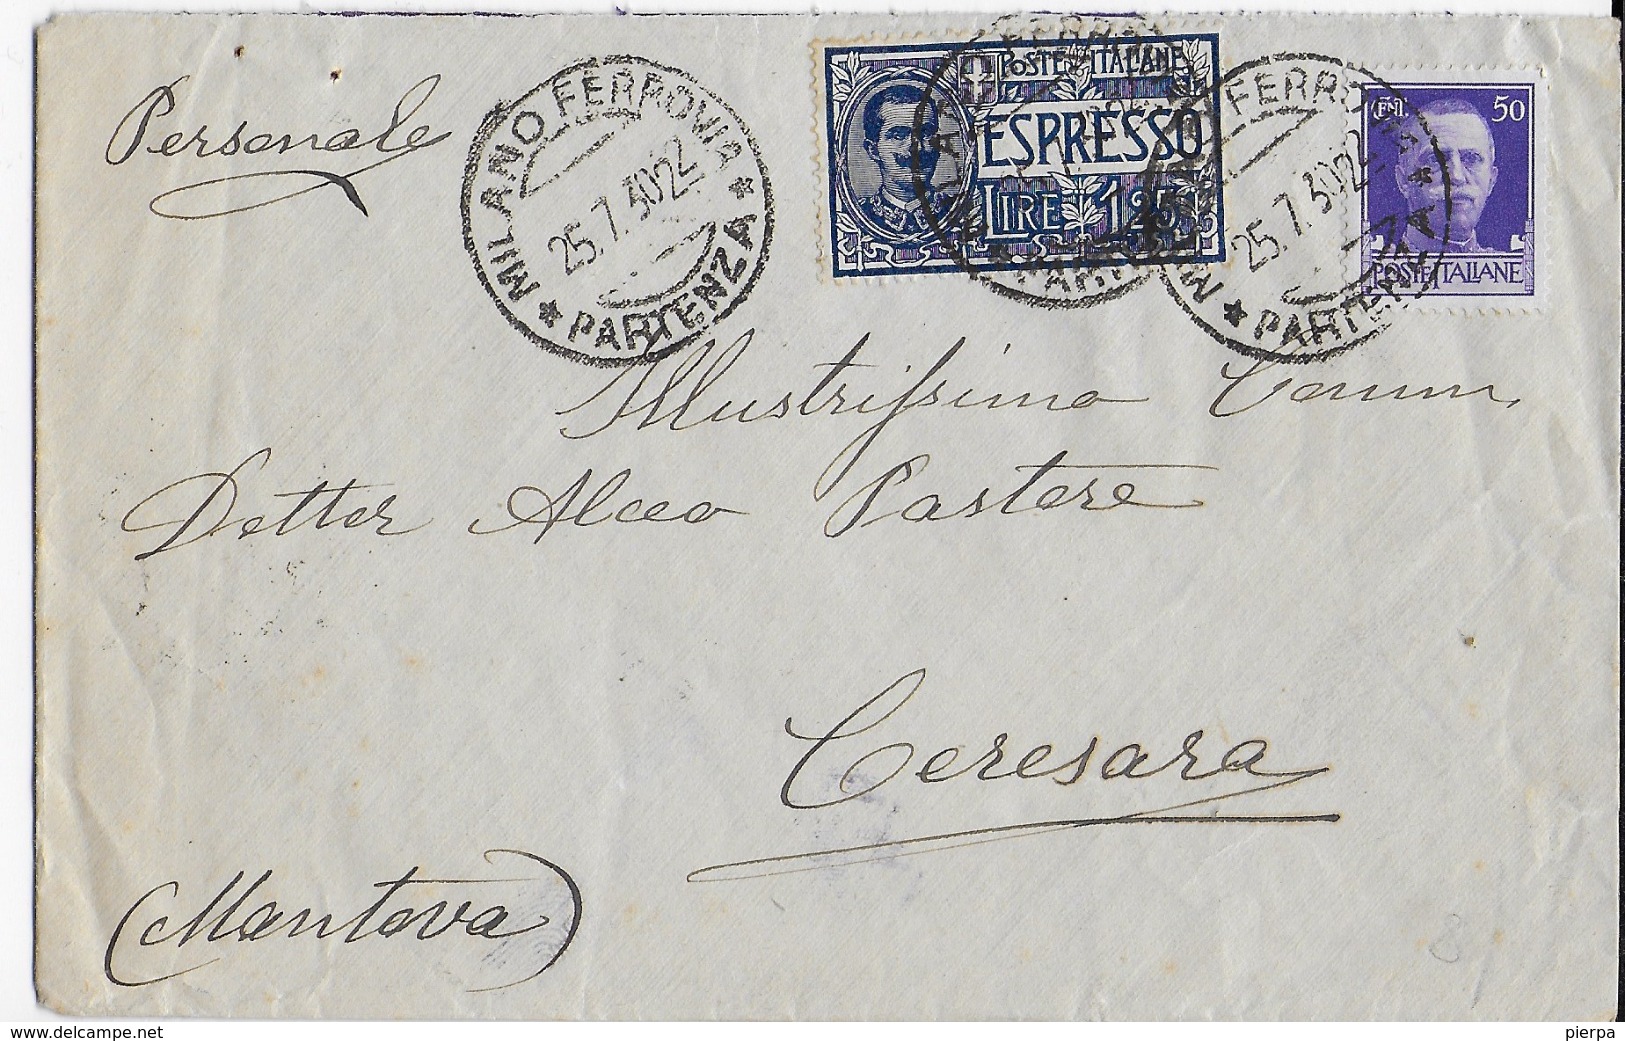 Personale
MILANO FERROVIA
25.7.30 22
★ PARTENZA ★
POSTE ITALIANE
ESPRESSO
LIRE 1,25
FERROVIA
25.7.30 22
★ PARTENZA ★
CENT. 50
POSTE ITALIANE
Illustrissimo Comm.
Dottor Alceo Pastore
Ceresara
(Mantova)
www.delcampe.net
pierpa